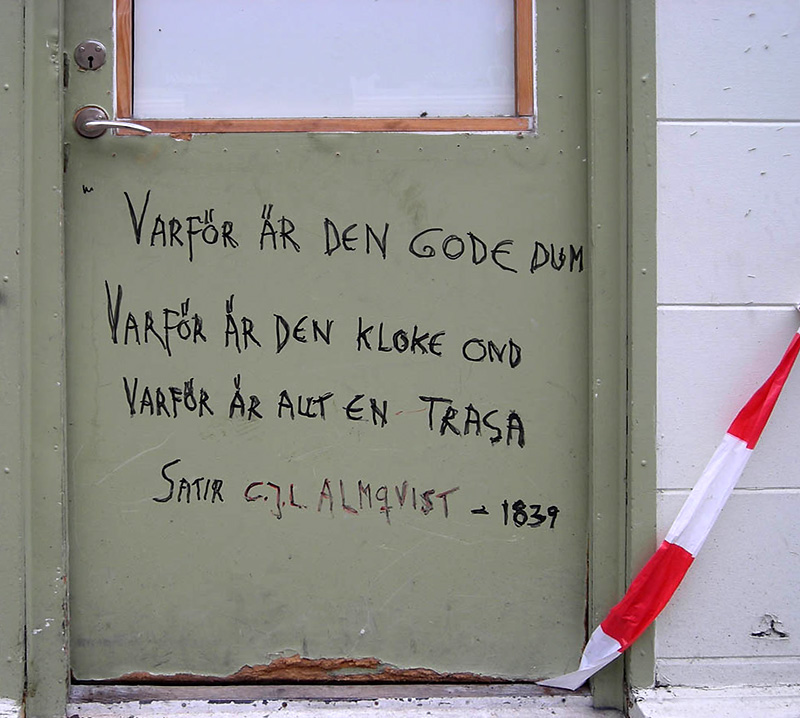 VARFÖR ÄR DEN GODE DUM
VARFÖR ÄR DEN KLOKE OND
VARFÖR ÄR ALLT EN TRASA
SATIR C.J.L. ALMQVIST - 1839